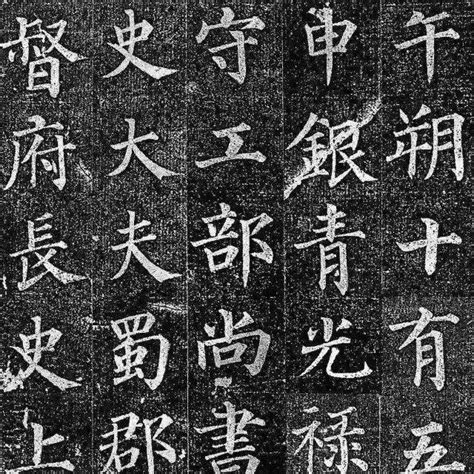 午朔十有五
申銀青光祿
守工部尚書
史大夫蜀郡
督府長史上